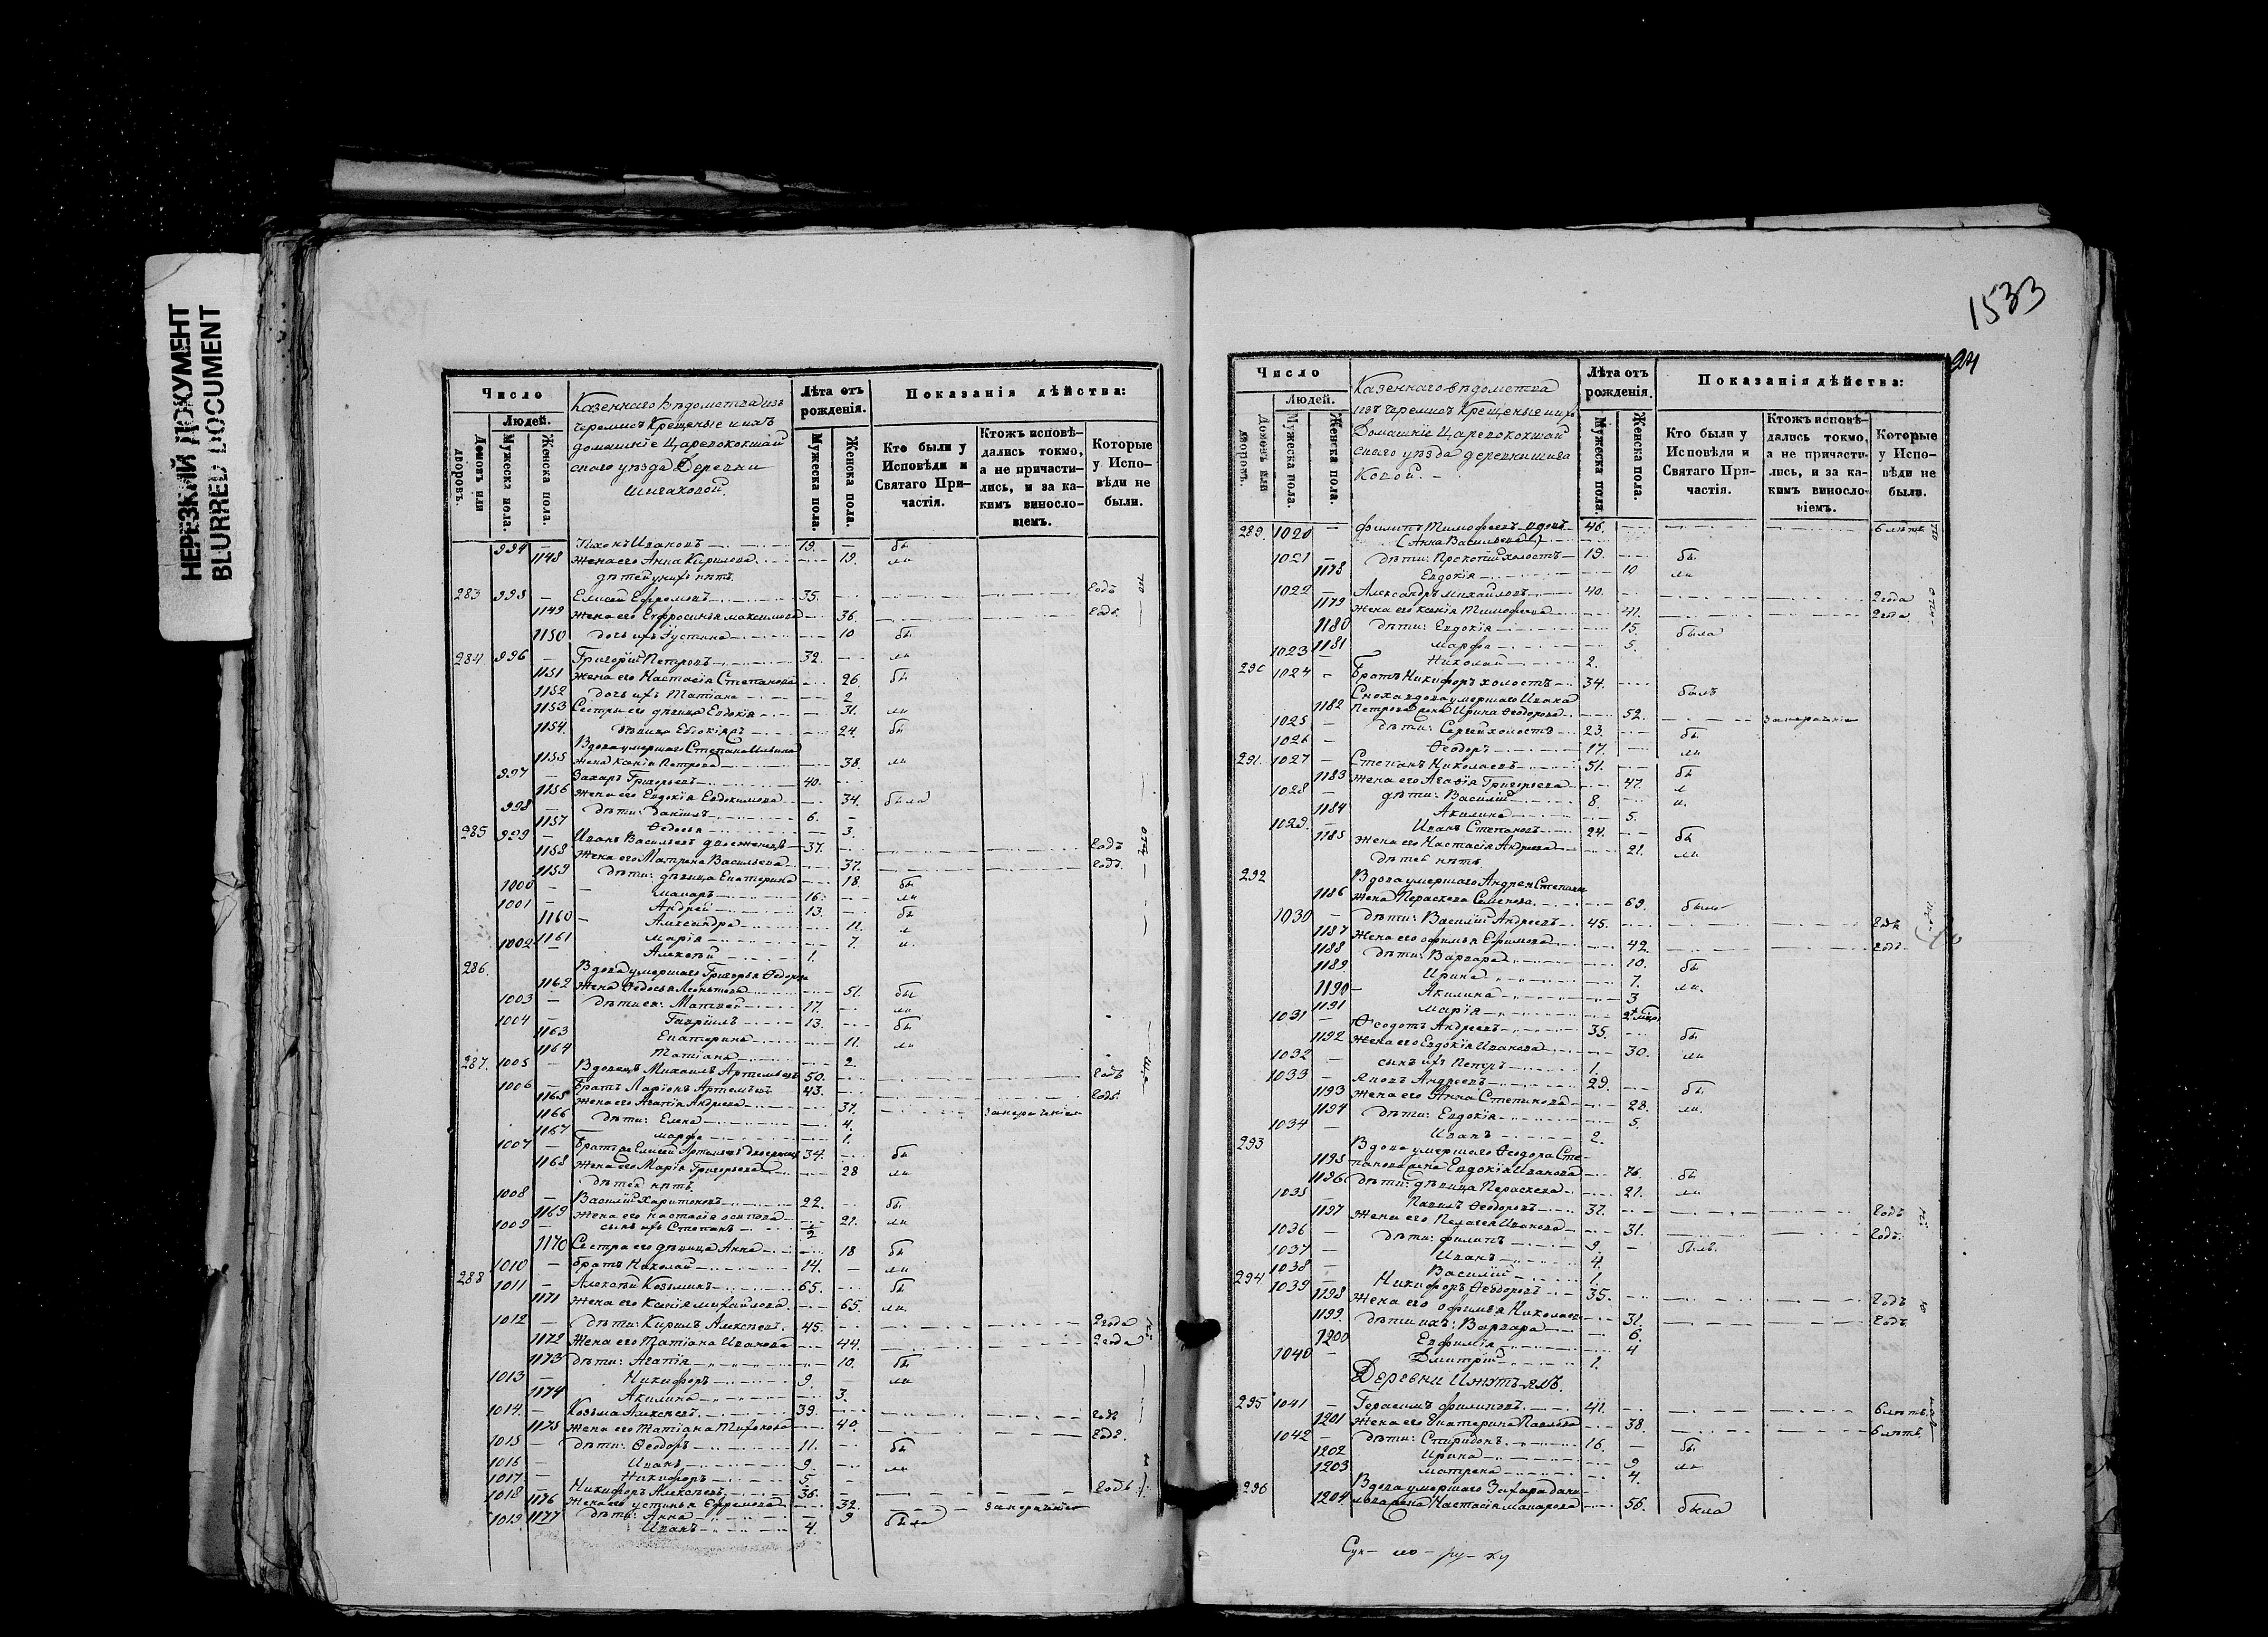 НЕРЕЗКИЙ ДОКУМЕНТ
BLURRED DOCUMENT
Число
Людей.
Домовъ или дворовъ.
Мужеска пола.
Женска пола.
Казеннаго ведомства изъ
черемисъ Крещеные и ихъ
домашніе Царевококшай
скаго уѣзда Деревни
Шигаковой.
Лѣта отъ рожденія.
Мужеска пола.
Женска пола.
Показанія дѣйства:
Кто были у Исповѣди и Святаго Причастія.
Ктожъ исповѣдались токмо, а не причастились, и за какимъ винословіемъ.
Которые у Исповѣди не были.
994 — Тихонъ Ивановъ 19. — бы
1148 Жена его Анна Кирилова 19. ли
дѣтей у нихъ нѣтъ.
283 995 — Елисей Ефремовъ 35. годъ
1149 Жена его Евфросинья Максимова 36. годъ
1150 дочь ихъ Устинья 10 бы
284 996 — Григорій Петровъ 32. ли
1151 Жена его Настасія Степанова 26. бы
1152 дочь ихъ Татіана 2
1153 Сестры его дѣвица Евдокія 31. ли
1154. дѣвица Евдокія 24. бы
Вдова умершаго Степана Ильина
1155 жена Ксенія Петрова 38. ли
997 — Захаръ Григорьевъ 40.
1156 Жена его Евдокія Евдокимова 34. была
998 — дѣти: Даніилъ 6.
1157 Федосья 3.
285 999 — Иванъ Васильевъ двоеженецъ 37. годъ
1158 Жена его Матрена Васильева 37. годъ.
1159 дѣти: дѣвица Екатерина 18. бы
1000 — Макаръ 16. ли
1001 — Андрей 13. бы
1160 — Александра 11. л
1161 Марія 7. и.
1002 — Алексѣй 1.
286. Вдова умершаго Григорья Федорова
1162 Жена Федосья Леонтьева 51. бы
1003 — дѣти ея: Матвей 17. ли
1004 — Гавріилъ 13. бы
1163 Екатерина 11. ли
1164 Татіана 2.
287. 1005 — Вдовецъ Михаилъ Артемьевъ 50. годъ
1006 — Братъ Ларіонъ Артемьевъ 43. годъ.
1165 Жена его Агапія Андреева 37. за нераченіем
1166 дѣти: Елена 4.
1167 Марфа 1.
1007 — Братъ Елисей Артемьевъ двоеженецъ 34. бы
1168 Жена его Марія Григорьева 28 ли
дѣтей нѣтъ.
1008 — Василій Харитоновъ 22. бы
1169 Жена его Настасія Осипова 21. ли
1009 — сынъ ихъ Степанъ 2
1170 Сестра его дѣвица Анна 18 бы
1010 — братъ Николай 14. ли
288 1011 — Алексѣй Козьминъ 65. бы
1171 Жена его Ксенія Михайлова. 65. ли.
1012 — дѣти: Кирилъ Алексѣевъ. 45. 2 года
1172 Жена его Татіана Иванова 44. 2 года
1173 дѣти: Агапія 10. бы
1013 — Никифоръ 9. ли
1174 Акилина 3.
1014. — Козьма Алексѣевъ. 39. годъ
1175 Жена его Татіана Тихонова 40. годъ.
1015 — дѣти: Феодоръ 11. бы
1016 — Иванъ 9. ли
1017. — Никифоръ 5.
1018 — Никифоръ Алексѣевъ 36. годъ.
1176 Жена его Устинья Ефремова 32. за нераченіем
1177 дѣти: Анна 9 была
1019 Иванъ 4.
1533
Число
Людей.
Домовъ или дворовъ.
Мужеска пола.
Женска пола.
Казеннаго вѣдомства
изъ черемисъ Крещеные и ихъ
Домашніе Царевококшай
скаго уѣзда деревни Шига
ковой. —
Лѣта отъ рожденія.
Мужеска пола.
Женска пола.
Показанія дѣйства:
Кто были у Исповѣди и Святаго Причастія.
Ктожъ исповѣдались токмо, а не причастились, и за какимъ винословіемъ.
Которые у Исповѣди не были.
289. 1020 — Филипъ Тимофеевъ вдовъ 46. 6 лѣтъ
(Анна Васильева)
1021 — дѣти: Прокопій холостъ 19. бы
1178 Евдокія 10 ли
1022 — Александръ Михайловъ 40. 2 года
1179 Жена его Ксенія Тимофеева 41. 2 года
1180 дѣти: Евдокія 15. была
1181 Марфа 5.
1023 — Николай 2.
290 1024 — Братъ Никифоръ холостъ 34. былъ
Сноха вдова умершаго Ивана
1182 Петрова жена Ирина Феодорова 52. за нераченіем
1025 — дѣти: Сергей холостъ 23. бы
1026 — Феодоръ 17. ли
291. 1027 — Степанъ Николаевъ 51. бы
1183 Жена его Агафія Григорьева 47. л
1028 — дѣти: Василій 8. и.
1184 Акилина 5.
1029. — Иванъ Степановъ 24. бы
1185 Жена его Настасія Андреева 21. ли
дѣтей нѣтъ.
292 Вдова умершаго Андрея Степанова
1186 Жена Параскева Семенова 69. была
1030 — дѣти: Василій Андреевъ 45. годъ
1187 Жена его Офимья Ефимова 42. годъ
1188 дѣти: Варвара 10. бы
1189 Ирина 7. ли.
1190 — Акилина 3
1191 Марія
1031 — Феодотъ Андреевъ 35. бы
1192 Жена его Евдокія Иванова 30. ли
1032 — сынъ ихъ Петръ 1.
1033 — Яковъ Андреевъ 29. бы
1193 Жена его Анна Степанова 28. ли.
1194 дѣти: Евдокія 5.
1034 — Иванъ 2.
293 Вдова умершаго Феодора Сте-
1195 панова жена Евдокія Иванова 76. бы
1196 дѣти: дѣвица Параскева 21. ли
1035 — Павилъ Феодоровъ 37. годъ
1197 Жена его Пелагея Иванова 31. годъ.
1036 — дѣти: Филипъ 9. былъ.
1037 — Иванъ 4.
1038 — Василій 1.
294. 1039 — Никифоръ Феодоровъ 35. годъ
1198 Жена его Офимья Николаева 31. годъ
1199. дѣти ихъ: Варвара 6.
1200 Евфимія 4
1040 — Дмитрій 1.
Деревни Ижутъ-ялъ.
295 1041 — Герасимъ Филиповъ 41. 6 лѣтъ.
1201 Жена его Екатерина Павлова 38. 6 лѣтъ.
1042 — дѣти: Спиридонъ 16. бы
1202 Ирина 9 ли
1203 Матрена 4.
296 Вдова умершаго Захара Дани-
1204 лова жена Настасія Макарова 56. была